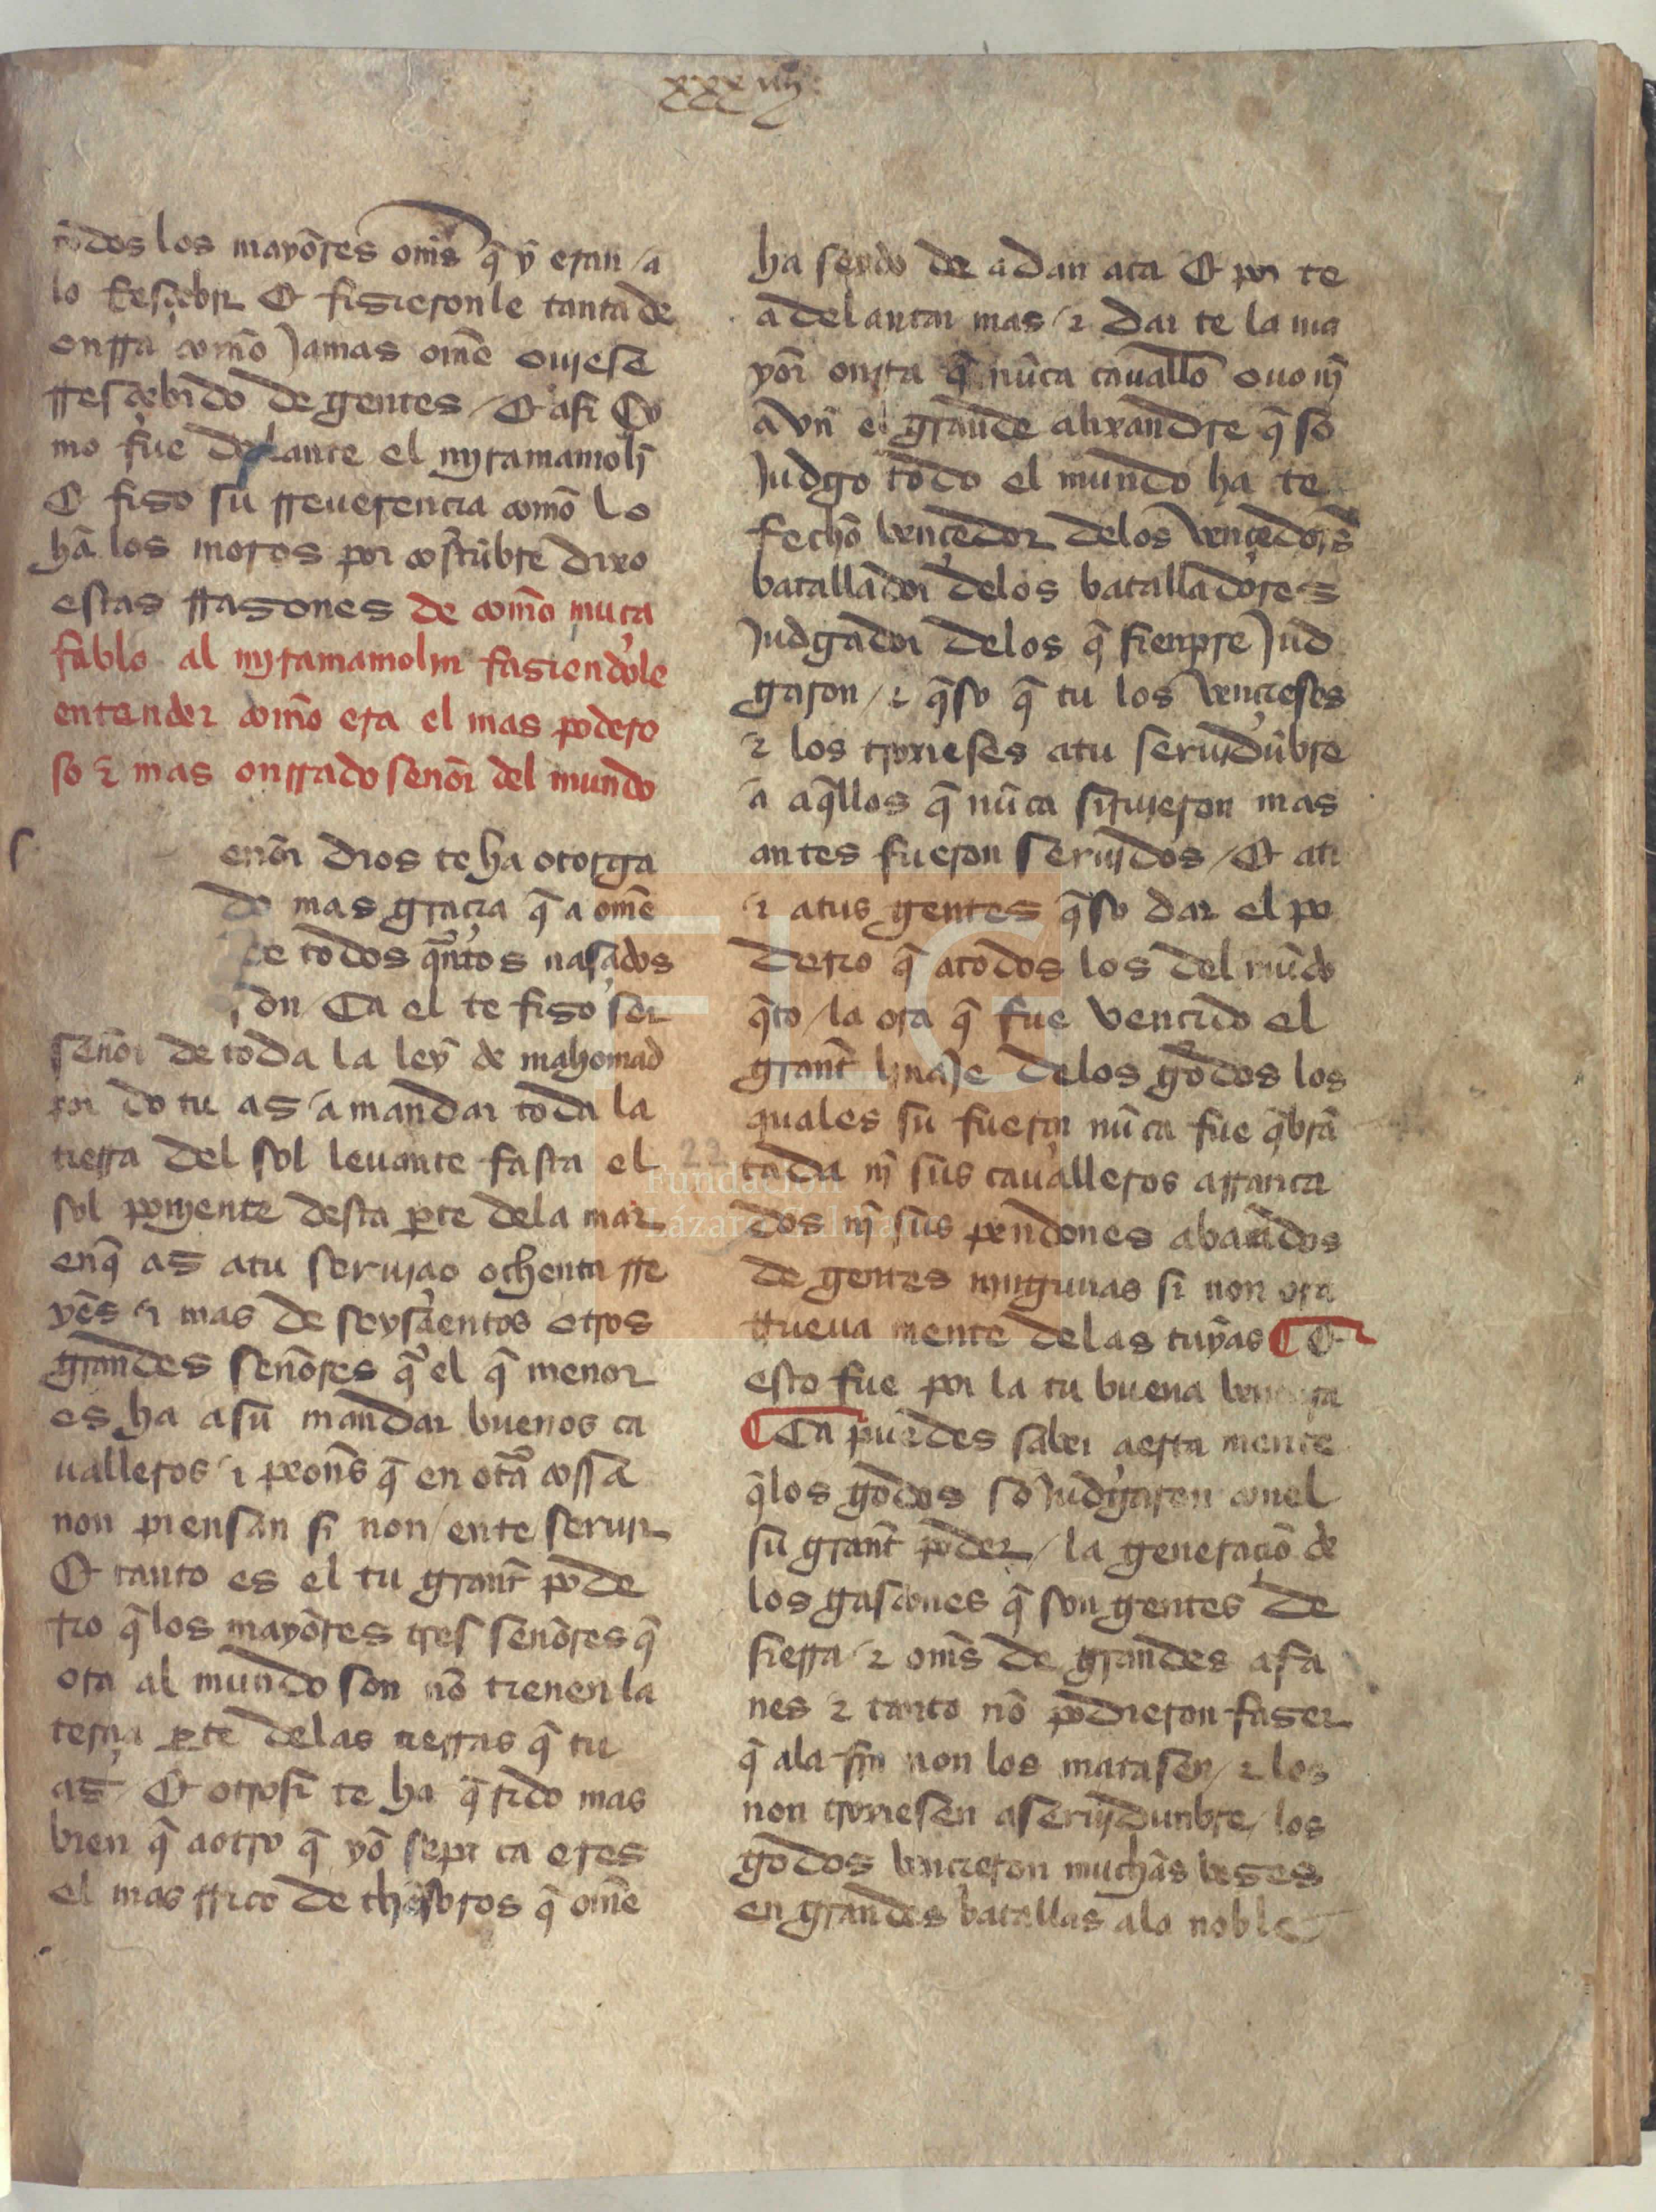 xxx iiij
todos los mayores oms̃ q̃ y eran / a
lo Resçebir E fisieronle tanta de
onrra como Jamas ome ouiese
rresçebido de gentes / E asi Co
mo fue delante el myramamolĩ
E fiso su rreuerencia comõ lo
hã los moros por costũbre dixo
estas rrasones de comõ muça
fablo al myramamolin fasiendole
entender comõ era el mas podero
so & mas onrrado señor del mundo
s
eñor dios te ha otorga
do mas graçia q̃ a ome
de todos quãtos nasçidos
son / Ca el te fiso ser
señor de toda la ley de mahomad
por do tu as / a mandar toda la
tierra del sol leuante fasta el
sol poniente desta p̃te dela mar
enq̃ as atu seruiçio ochenta rre
yẽs & mas de seysçientos otros
grandes señores q̃ el q̃ menor
es ha asu mandar buenos ca
ualleros & peonẽs q̃ en otrã cossa
non piensan si non / ente seruir
E tanto es el tu grant̃ pode
rio q̃ los mayores tres señores q̃
ora al mundo son nõ tienen la
terçia p̃te delas tierras q̃ tu
as / E otrosi te ha q̃rido mas
bien q̃ aotro q̃ yo sepa ca eres
el mas rrico de thesoros q̃ ome
ha seydo de adan aca E por te
adelantar mas / & dar te la ma
yor onrra q̃ nũca cauallõ ouo nĩ
avn el grande alixandre q̃ so
Judgo todo el mundo ha te
fecho vençedor delos vençedors̃
batallador delos batalladores
Judgador delos q̃ sienpre Jud
garon / & q̃so q̃ tu los vençieses
& los troxieses atu seruidũbre
a aq̃llos q̃ nũca siruieron mas
antes fueron seruidos / E ati
& atus gentes q̃so dar el po
derio q̃ atodos los del mũdo
q̃to / la ora q̃ fue vencido el
grant̃ linaje delos godos los
quales su fueron nũca fue q̃brã
tada nĩ sus caualleros arranca
dos nĩ sus pendones abaxados
de gentes ningunas si non ora
nueua mente delas tuyas E
esto fue por la tu buena ventura
Ca puedes saber çierta mente
q̃ los godos sojudgaron conel
su grant̃ poder / la generaçiõ de
los gascones q̃ son gentes de
sierra & oms̃ de grandes afa
nes & tanto nõ podieron faser
q̃ ala fin non los matasen / & los
non troxiesen aseruidunbre / los
godos vencieron muchas veses
en grandes batallas alo noble
22
FLG
Fundación
Lázaro Galdiano